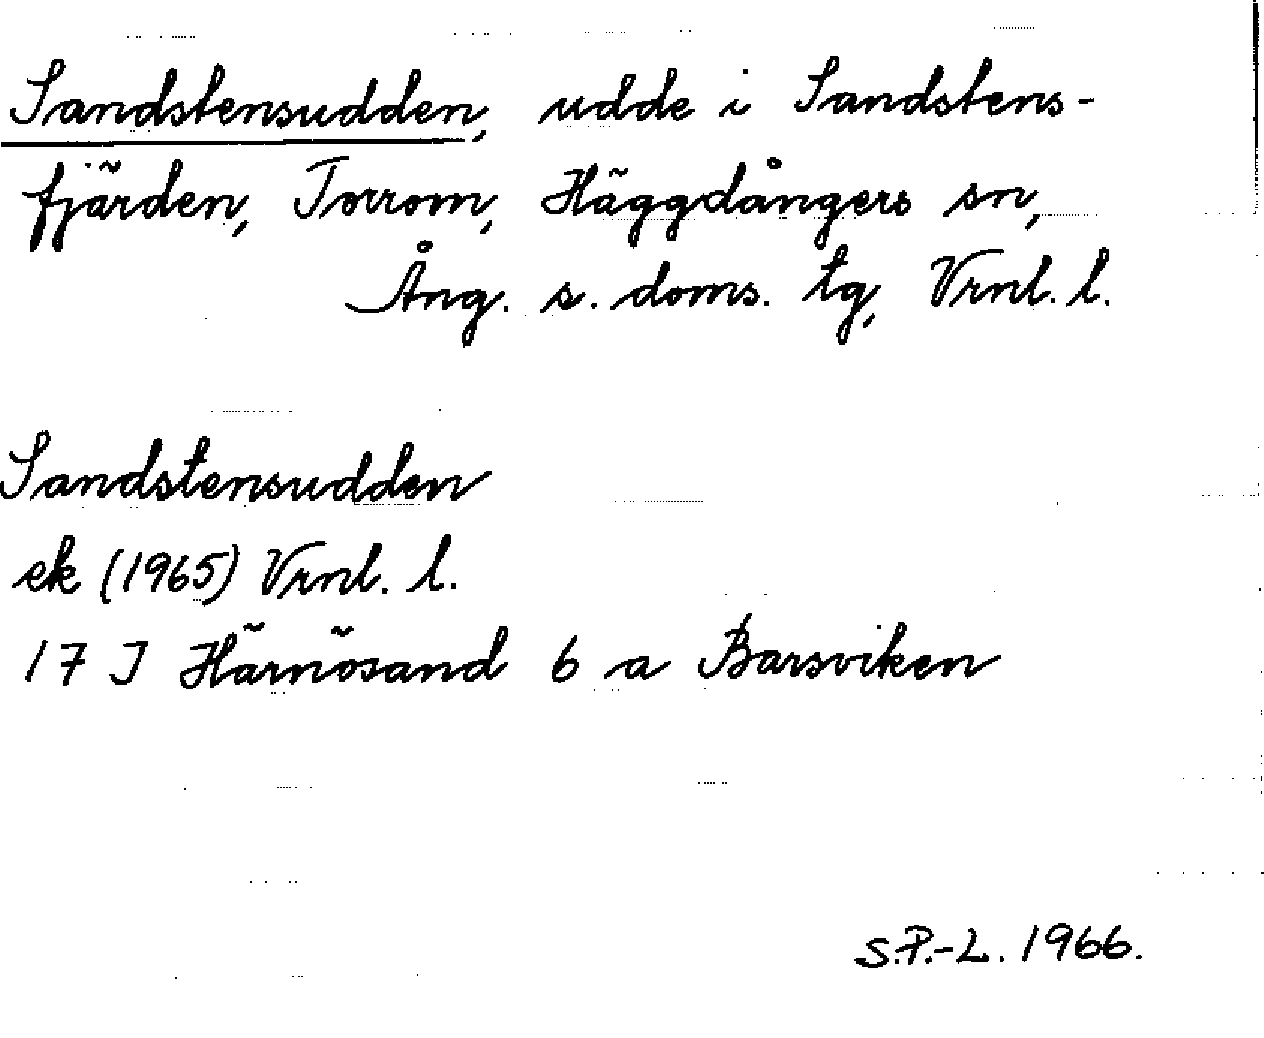 Sandstensudden, udde i Sandstens-
fjärden, Torrom, Häggdångers sn,
Ång. s. doms. tg, Vrnl. l.
Sandstensudden
ek (1965) Vrnl. l.
17 I Härnösand 6 a Barsviken
S.P.-L. 1966.